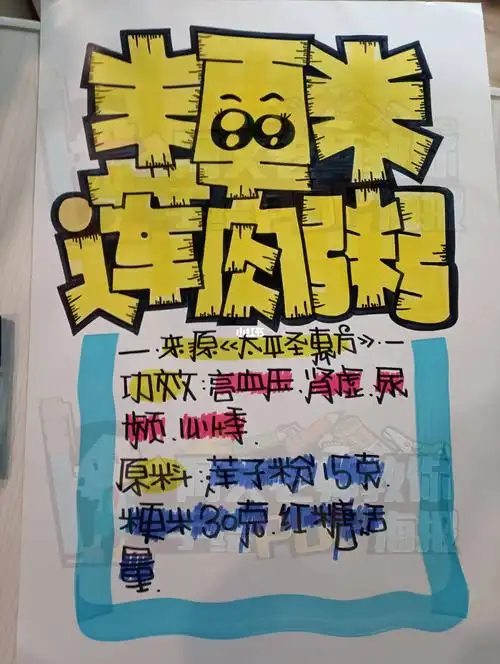 粳米
莲肉粥
小红书
— 来源《太平圣惠方》—
功效:高血压.肾虚.尿
频.心悸.
原料:莲子粉15克.
粳米30克.红糖适
量.